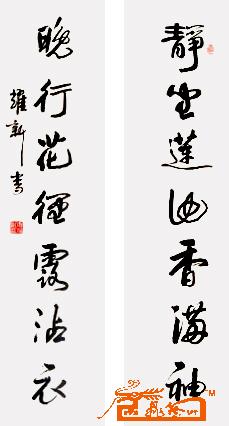 静坐莲池香满袖
晚行花径露沾衣
雄新书